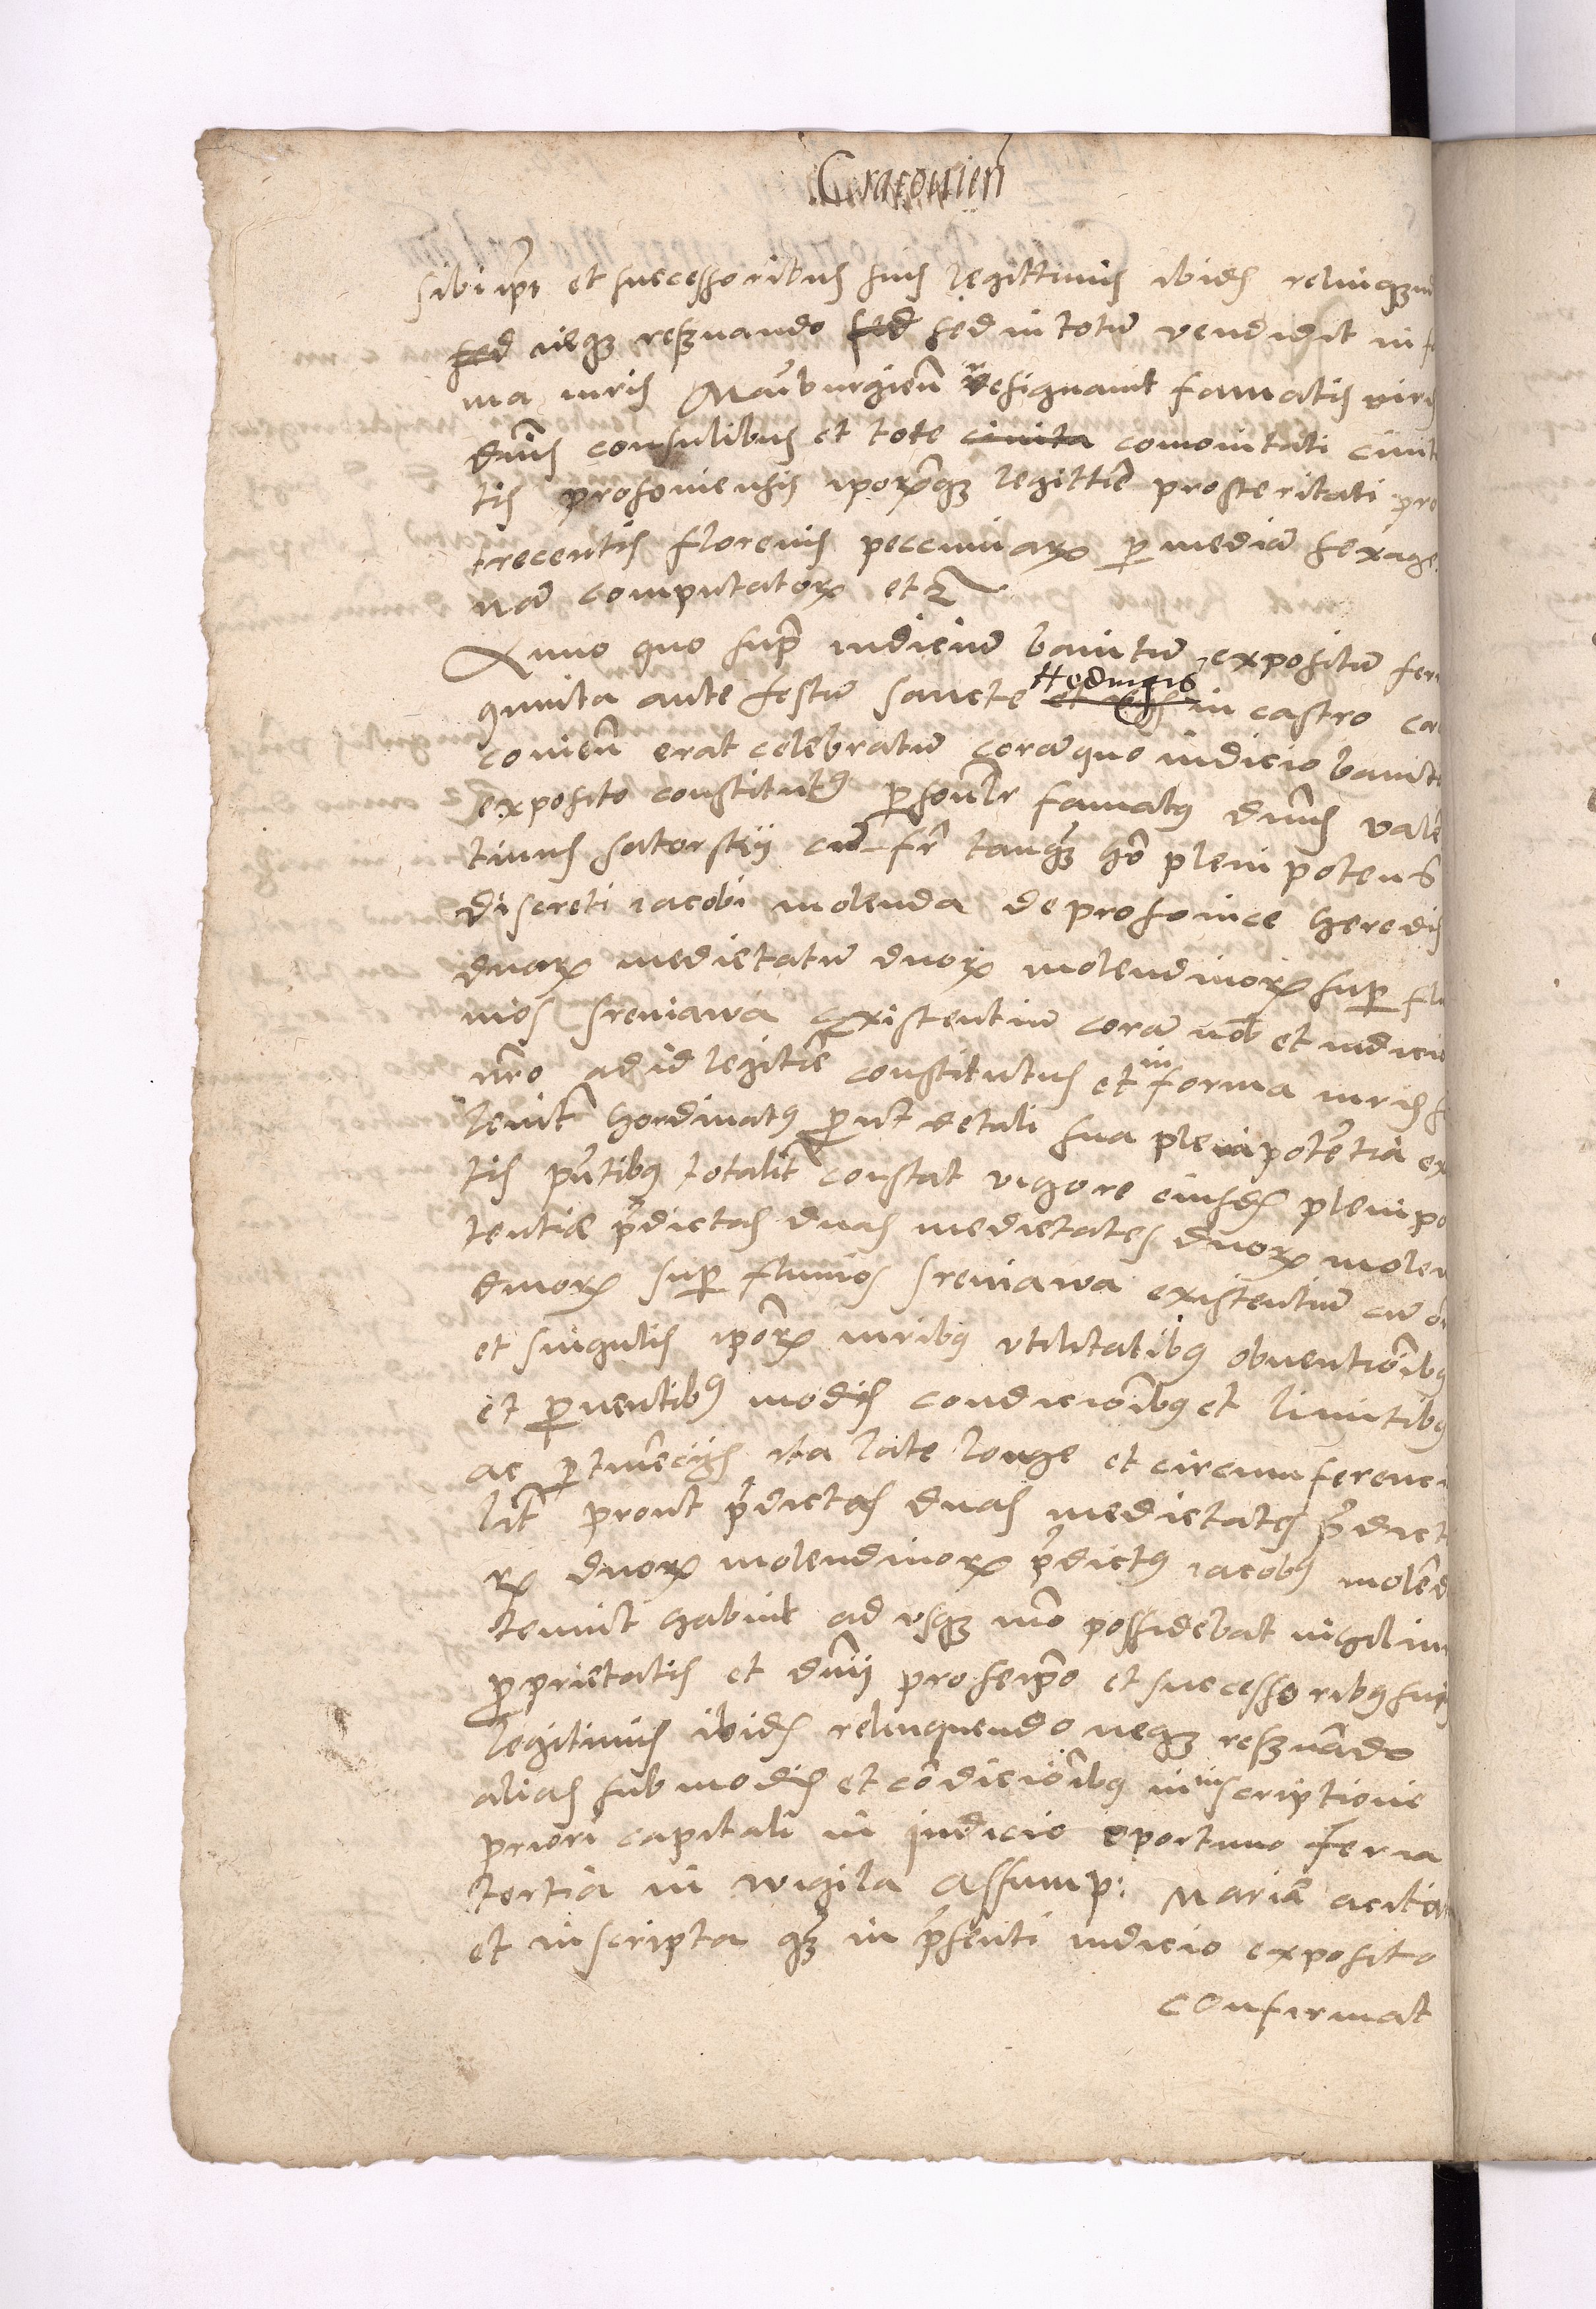 Cracovien
sibi ipsi et successoribus suis legittimis ibidem relinquen
sed neqz reservando sed sed in totum vendidit in fo
ma iuris Maiburgien resignavit famatis viris
dnis consulibus et tote civita comonitati civita
tis prosoviensis iporumqz legittime prosteritati pro
trecentis florenis peccuniarum per mediam sexage
nam computatorum etz
Anno quo supra iudicium banitum expositum feria
quinta ante festum sancte Hedvigis in castro cra
covien erat celebratum coram quo iudicio banito
exposito constitutus personaliter famatus dnus valen
tinus satorskij cum fr tanqz ho plenipotens
discreti iacobi molenda de prosovice heredis
duarum medietatum duorum molendinorum super flu
vios sreniawa existentium coram nob et iudicio
nro ad id legitime constitutus et in forma iuris so
lenit hordinatus prout de tali sua plenipotentia ex
tis pntibus totalit constat vigore eiusdem plenipo
tentiae predictas duas medietates duorum molen
dinorum super fluvios sreniawa existentium cum o
et singulis iporum iuribus utilitatibus obventionibus
et proventibus modis condicionibus et limitibus
ac pertinenciis ita late longe et circumferenci
lit prout predictas duas medietates predicto
rum duorum molendinorum predictus iacobus molend
tenuit habuit ad usqz mo possidebat nichil iur
proprietatis et dnii pro se ipso et successoribus suis
legitimis ibidem relinquendo neqz reservando
alias sub modis et condicionibus in inscriptione
priori capitali in iudicio oportuno feria
tertia in vigila Assump: Mariae acita
et inscripta qz in presenti iudicio exposito
confirmat